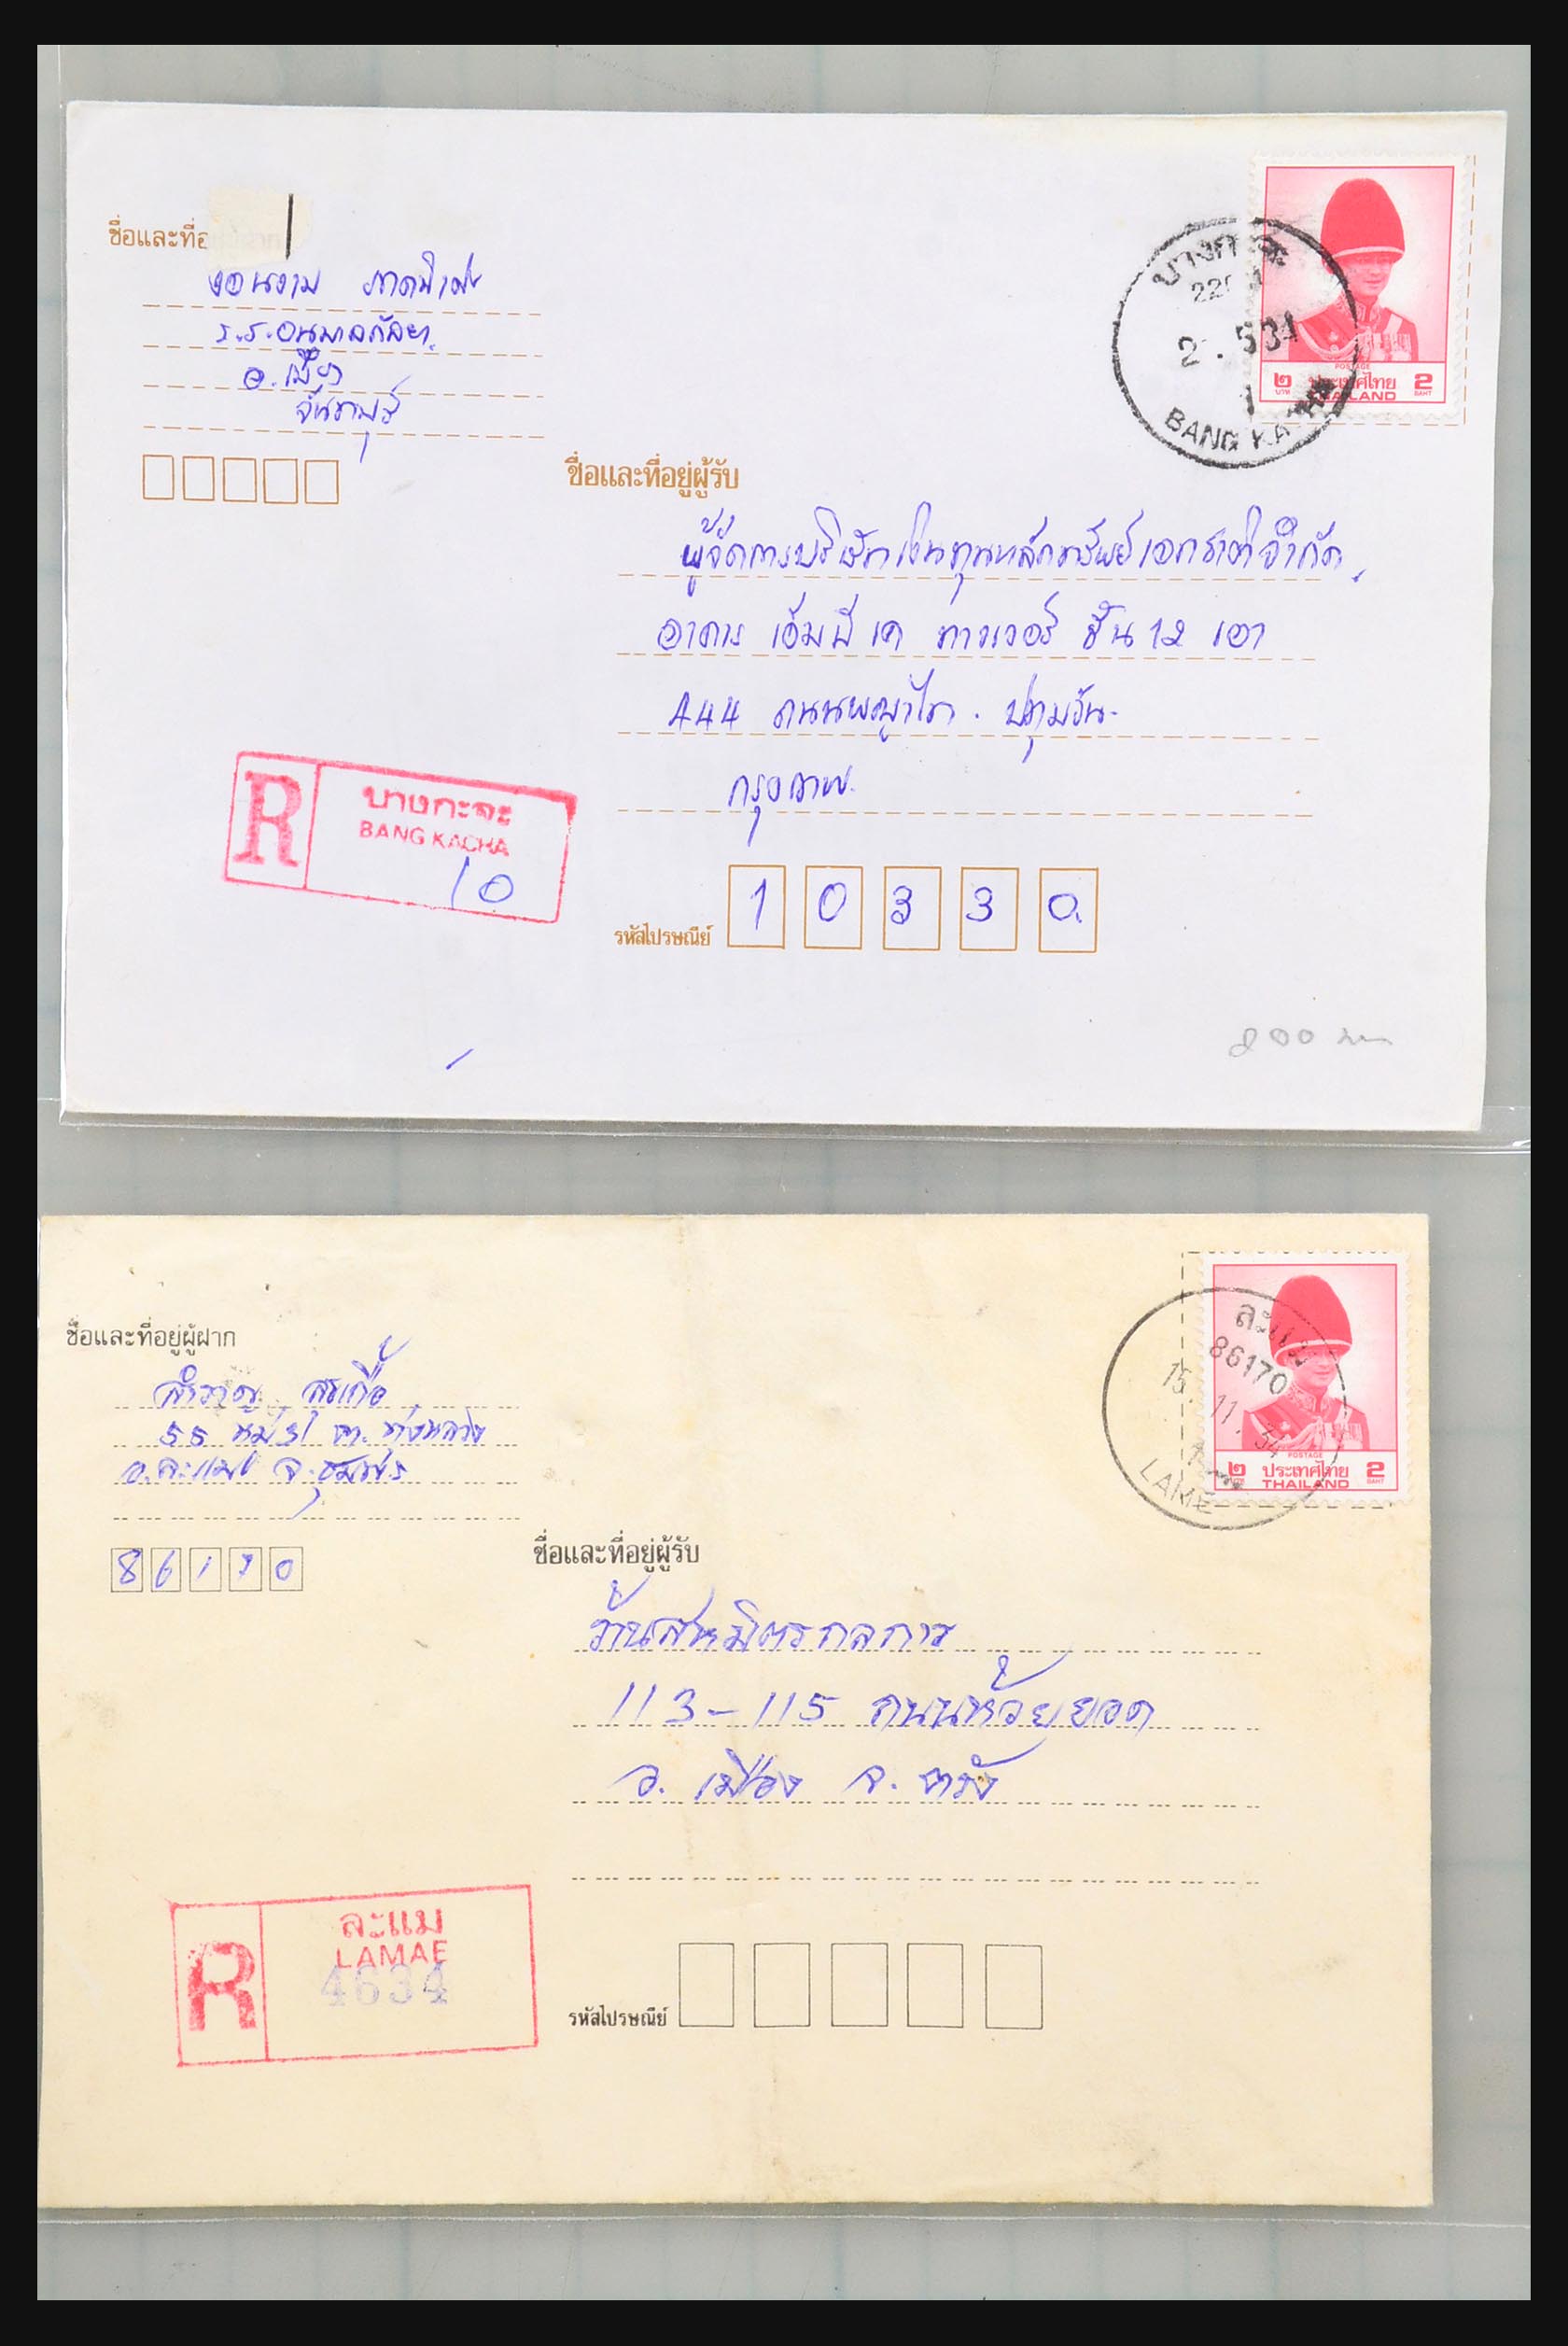 ชื่อและที่อ
ร.ร.อนุบาล
อ.เมือง
จันทบุรี
บางกะจะ
2. 5 34
1
BANG KACHA
POSTAGE
๒ ประเทศไทย 2
บาท THAILAND BAHT
ชื่อและที่อยู่ผู้รับ
ผู้จัดการบริษัทเงินทุนหลักทรัพย์เอกชาติจำกัด
อาคาร เอ็มบีเค ทาวเวอร์ ชั้น 12 เอา
444 ถนนพญาไท. ปทุมวัน.
กรุงเทพ.
R บางกะจะ
BANG KACHA
10
รหัสไปรษณีย์ 1 0 3 3 0
200
ชื่อและที่อยู่ผู้ฝาก
สำราญ
55 หมู่ ต. ทุ่งหลวง
อ.ละแม จ.ชุมพร
8 6 1 7 0
ละแม
86170
15. 11. 34
LAMAE
POSTAGE
๒ ประเทศไทย 2
บาท THAILAND BAHT
ชื่อและที่อยู่ผู้รับ
ร้านสหมิตรกลการ
113-115 ถนนห้วยยอด
อ. เมือง จ. ตรัง
R ละแม
LAMAE
4634
รหัสไปรษณีย์